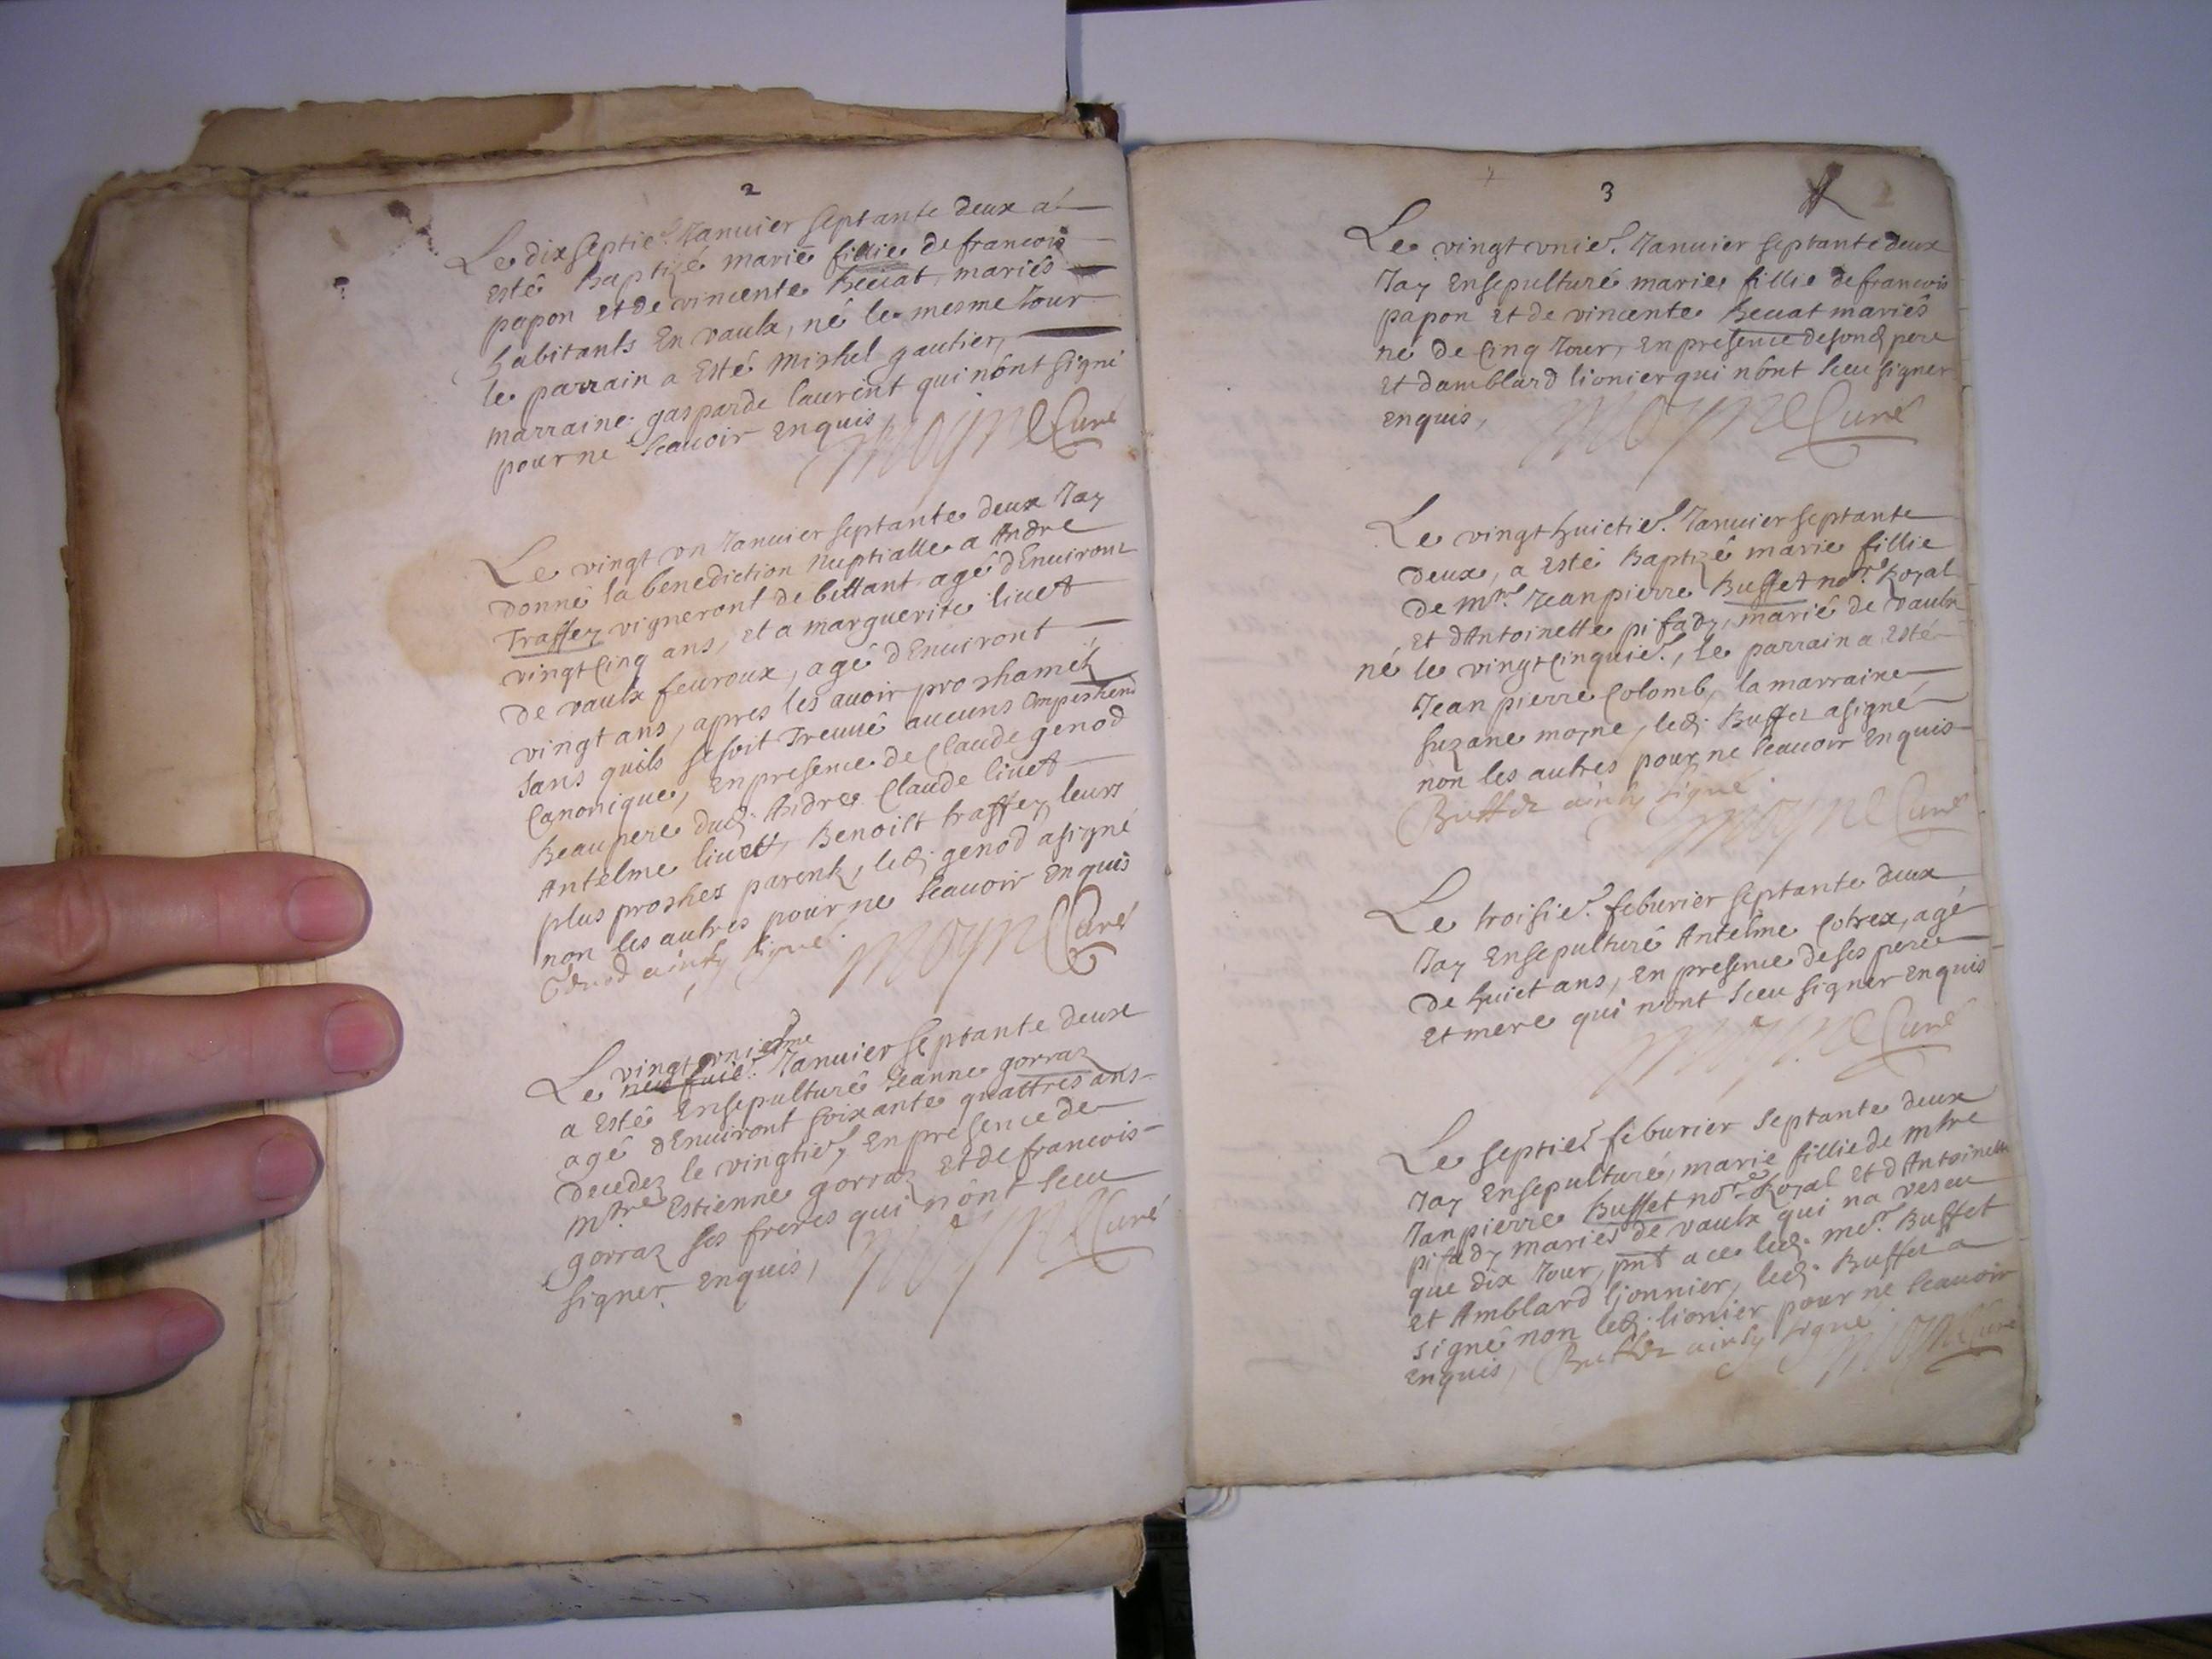 2
Le dix septie.e Januier septante deux a
esté Baptizé marie fillie de francois
papon et de vincente Beuat mariés
habitants En vaulx, né le mesme Jour
le parrain a Esté Michel gautier,
marraine gasparde laurent qui nônt signé
pour ne scauoir enquis
Moyne Curé
Le vingt vn Januier septante deux Jay
donné la benediction Nuptialle a Andre
Traffey vigneront de bettant agé dEnuiront
vingt Cinq ans, et a marguerite liuet
de vaulx feuroux, agé dEnuiront
vingt ans, apres les auoir proshamés
sans quils se soit Treuué aucuns Empeshem.t
Canonique, En presence de Claude genod
Beaupere dud. Andre Claude liuet
Antelme liuet, Benoist traffey leurs
plus proshes parents, led. genod a signé
non les autres pour ne scauoir enquis
Genod ainsy signé.
Moyne Curé
vingt vniesme
Le neufuie.e Januier septante deux
a Esté Ensepulturé Jeanne gorraz
agé dEnuiront soixante quattres ans
decedez le vingtie.e, En presence de
M.tre Estienne gorraz et de francois
gorraz ses freres qui nônt sceu
signer enquis,
Moyne Curé
3
Le vingt vnie.e Januier septante deux
Jay Ensepulturé marie fillie de francois
papon et de vincente Beuat mariés
né de Cinq Jour, En presence de son d. pere
et damblard lionier qui nônt sceu signer
enquis,
Moyne Curé
Le vingt huictie.e Januier septante
deux, a esté Baptizé marie fillie
de M.re Jean pierre Buffet no.re Royal
et dAntoinette pifady, marié de vaulx
né le vingt Cinquie.e, le parrain a Esté
Jean pierre Colomb, la marraine
suzane moyne, led. Buffet a signé
non les autres pour ne scauoir enquis
Buffet ainsy signé
Moyne Curé
Le troisie.e feburier septante deux
Jay Ensepulturé Antelme Cotrex, agé
de huict ans, en presence de ses pere
et mere qui nont sceu signer enquis
Moyne Curé
Le septie.e feburier septante deux
Jay Ensepulturé, marie fillie de M.tre
Janpierre Buffet no.re Royal et dAntoinette
pifady mariés de vaulx qui na vescu
que dix Jour, pnt a ce led. me.r Buffet
et Amblard lionnier, led. Buffet a
signé non led. lionier pour ne scauoir
enquis, Buffet ainsy signé
Moyne Curé